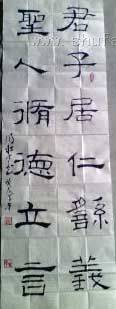 君子居仁繇義
聖人循德立言